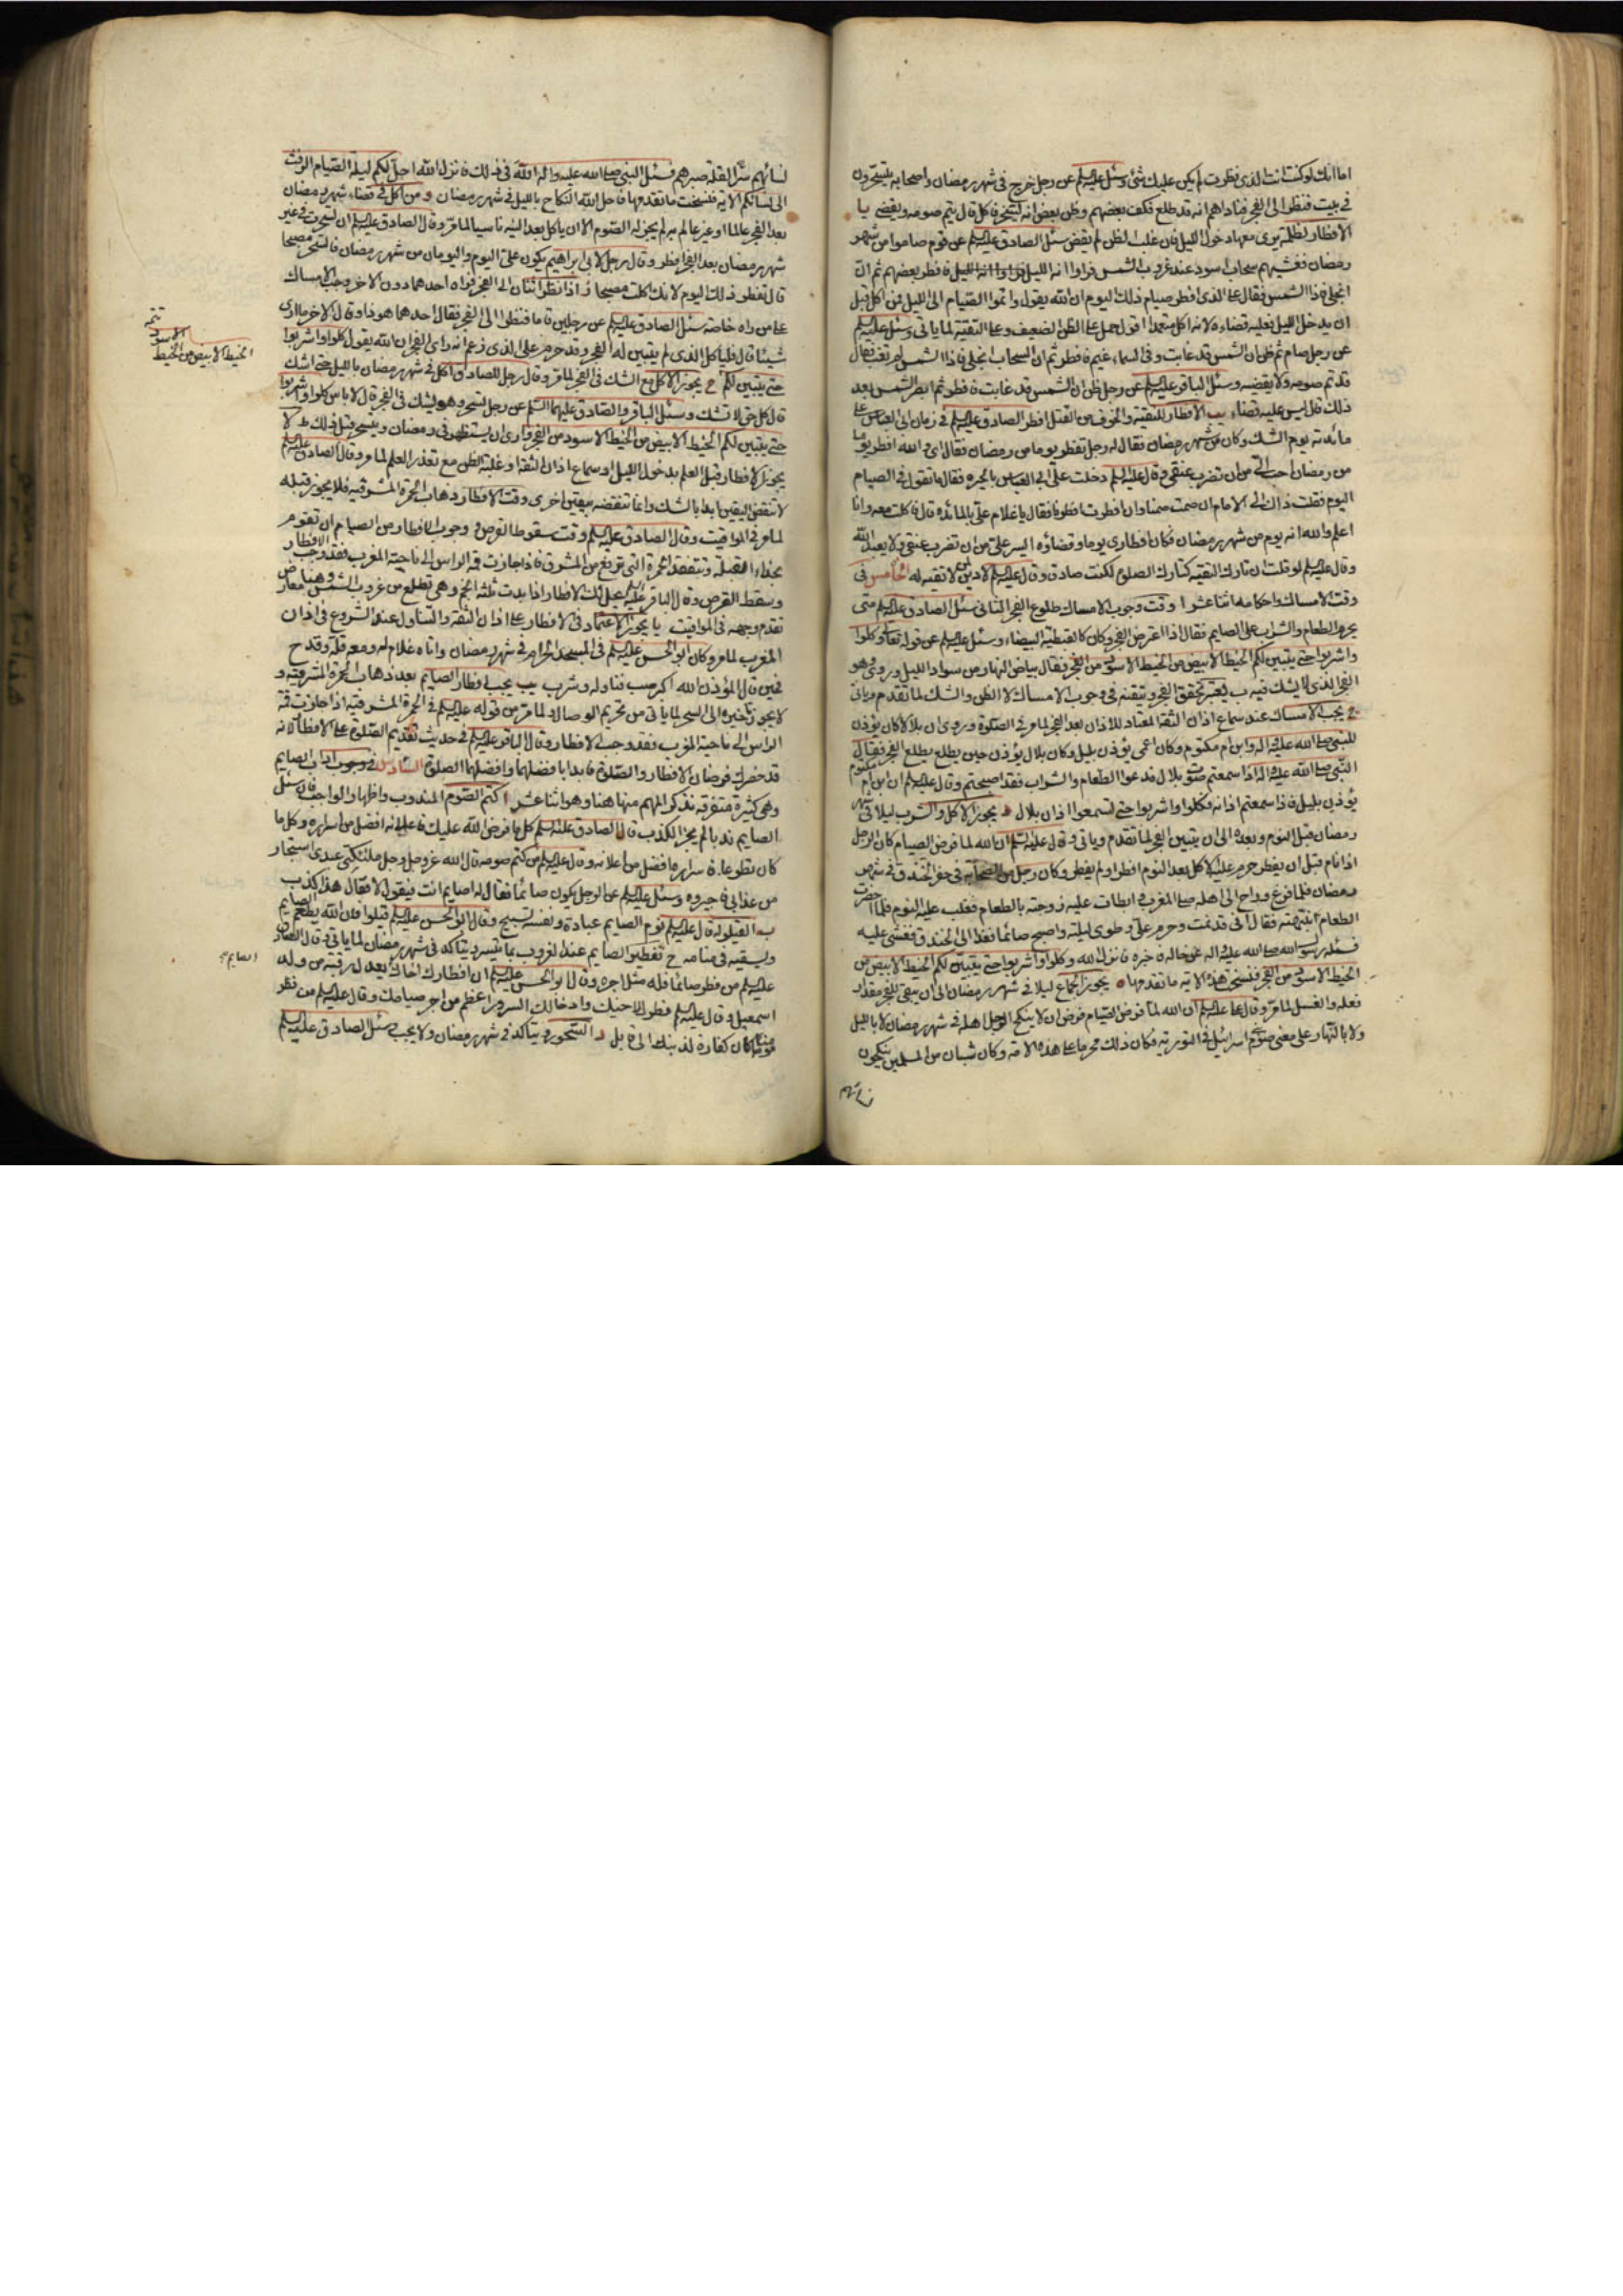 اما انك لو كنت انت الذى نظرت لم يكن عليك شئ وسئل عليه السلم عن رجل خرج فى شهر رمضان واصحابه يتسحرون
فى بيت فنظر الى الفجر فناداهم انه قد طلع فكف بعضهم وظن بعض انه يسخر فاكل قال يتم صومه ويقضى يا
الافطار لظلمة يرى معها دخول الليل فان غلب الظن لم يقض سئل الصادق عليه السلم عن قوم صاموا من شهر
رمضان فغشيهم سحاب اسود عند غروب الشمس فراوا انه الليل فافطر بعضهم ثم ان
انجلى فاذا الشمس فقال على الذى افطر صيام ذلك اليوم ان الله يقول واتموا الصيام الى الليل فمن اكل قبل
ان يدخل الليل فعليه قضاءه لانه اكل متعمدا اقول حمل على الظن الضعيف وعلى التقية لما ياتى وسئل عليه السلم
عن رجل صام ثم ظن ان الشمس قد غابت وفى السماء غيم فافطر ثم ان السحاب انجلى فاذا الشمس لم تغب فقال
قد تم صومه ولا يقضيه وسئل الباقر عليه السلم عن رجل ظن ان الشمس قد غابت فافطر ثم ابصر الشمس بعد
ذلك قال ليس عليه قضاء يب الافطار للتقية والخوف من القتل افطر الصادق عليه السلم فى زمان ابى العباس على
مائدته يوم الشك وكان من شهر رمضان فقال له رجل تفطر يوما من رمضان فقال اى والله افطر يوما
من رمضان احب الى من ان تضرب عنقى وقال عليه السلم دخلت على ابى العباس بالحيره فقال ما تقول فى الصيام
اليوم فقلت ذاك الى الامام ان صمت صمنا وان افطرت افطرنا فقال يا غلام على بالمائده قال فاكلت معه وانا
اعلم والله انه يوم من شهر رمضان فكان افطارى يوما وقضاؤه ايسر على من ان تضرب عنقى ولا يعبد الله
وقال عليه السلم لو قلت ان تارك التقيه كتارك الصلوة لكنت صادق وقال عليه السلم لا دين لمن لا تقيه له الخامس فى
وقت الامساك واحكامه اثنا عشر ا وقت وجوب الامساك طلوع الفجر الثانى سئل الصادق عليه السلم متى
يحرم الطعام والشراب على الصايم فقال اذا اعترض الفجر وكان كالقبطية البيضاء وسئل عليه السلم عن قوله تعالى وكلوا
واشربوا حتى يتبين لكم الخيط الابيض من الخيط الاسود من الفجر فقال بياض النهار من سواد الليل وروى هو
الفجر الذى لا يشك فيه ب يعتبر تحقق الفجر وتيقنه فى وجوب الامساك لا الظن والشك لما تقدم وياتى
ج يجب الامساك عند سماع اذان الثقة المعتاد للاذان بعد الفجر لما مر فى الصلوة وروى ان بلالا كان يؤذن
للنبى صلى الله عليه واله وابن ام مكتوم وكان اعمى يؤذن بليل وكان بلال يؤذن حين يطلع الفجر فقال
النبى صلى الله عليه واله اذا سمعتم صوت بلال فدعوا الطعام والشراب فقد اصبحتم وقال عليه السلم ان ابن ام مكتوم
يؤذن بليل فاذا سمعتم اذانه فكلوا واشربوا حتى تسمعوا اذان بلال د يجوز الاكل والشرب ليلا فى شهر
رمضان قبل النوم وبعده الى ان يتبين الفجر لما تقدم وياتى وقال عليه السلم ان الله لما فرض الصيام كان الرجل
اذا نام قبل ان يفطر حرم عليه الاكل بعد النوم افطر او لم يفطر وكان رجل من الصحابه فى حفر الخندق فى شهر
رمضان فلما فرغ وراح الى اهله صلى المغرب وابطات عليه زوجته بالطعام فغلب عليه النوم فلما احضرت
الطعام انبهته فقال انى قد نمت وحرم على وطوى ليلته واصبح صائما فغدا الى الخندق فغشى عليه
فسئله رسول الله صلى الله عليه واله عن حاله فاخبره فانزل الله وكلوا واشربوا حتى يتبين لكم الخيط الابيض من
الخيط الاسود من الفجر فنسخت هذه الاية ما تقدمها ه يجوز الجماع ليلا فى شهر رمضان الى ان يبقى للفجر مقدار
فعله والغسل لما مر وقال على عليه السلم ان الله لما فرض الصيام فرض ان لا ينكح الرجل اهله فى شهر رمضان لا بالليل
ولا بالنهار على معنى صوم بنى اسرائيل فى التورية فكان ذلك محرما على هذه الامة وكان شبان من المسلمين ينكحون
نسائهم
نسائهم سرا لقلة صبرهم فسئل النبى صلى الله عليه واله الله فى ذلك فانزل الله احل لكم ليلة الصيام الرفث
الى نسائكم الاية فنسخت ما تقدمها فاحل الله النكاح بالليل فى شهر رمضان و من اكل فى قضاء شهر رمضان
بعد الفجر عالما او غير عالم لم يجز له الصوم الا ان ياكل بعد النيه ناسيا لما مر وقال الصادق عليه السلم ان تسحرت فى غير
شهر رمضان بعد الفجر افطر وقال رجل لابى ابراهيم يكون على اليوم واليومان من شهر رمضان فاتسحر مصبحا
قال تفطر ذلك اليوم لانك اكلت مصبحا ز اذا نظر اثنان الى الفجر فراه احدهما دون الاخر وجب الامساك
على من راه خاصة سئل الصادق عليه السلم عن رجلين قاما فنظرا الى الفجر فقال احدهما هو ذا وقال الاخر ما ارى
شيئا قال فلياكل الذى لم يتبين له الفجر وقد حرم على الذى زعم انه راى الفجر ان الله يقول كلوا واشربوا
حتى يتبين لكم ح يجوز الاكل مع الشك فى الفجر لما مر وقال رجل للصادق اكل فى شهر رمضان بالليل حتى اشك
قال كل حتى لا تشك وسئل الباقر والصادق عليهما السلم عن رجل تسحر وهو يشك فى الفجر قال لا باس كلوا واشربوا
حتى يتبين لكم الخيط الابيض من الخيط الاسود من الفجر وارى ان يستظهر فى رمضان ويتسحر قبل ذلك ط لا
يجوز الافطار قبل العلم بدخول الليل او سماع اذان الثقة او غلبة الظن مع تعذر العلم لما مر وقال الصادق عليه السلم
لا تنقض اليقين ابدا بالشك وانما تنقضه بيقين اخر ى وقت الافطار ذهاب الحمرة المشرقيه فلا يجوز قبله
لما مر فى المواقيت وقال الصادق عليه السلم وقت سقوط القرص و وجوب الافطار من الصيام ان تقوم
بحذاء القبلة وتتفقد الحمرة التى ترتفع من المشرق فاذا جازت قمة الراس الى ناحية المغرب فقد وجب الافطار
وسقط القرص وقال الباقر عليه السلم يحل لك الافطار اذا بدت ثلثة انجم وهى تطلع من غروب الشمس وهنا معارض
تقدم وجهه فى المواقيت يا يجوز الاعتماد فى الافطار على اذان الثقة والتناول عند الشروع فى اذان
المغرب لما مر وكان ابو الحسن عليه السلم فى المسجد الحرام فى شهر رمضان واتاه غلام له ومعه قلة وقدح
فحين قال المؤذن الله اكبر صب فناوله وشرب يب يجب افطار الصايم بعد ذهاب الحمرة المشرقية و
لا يجوز تاخيره الى السحر لما ياتى من تحريم الوصال ولما مر من قوله عليه السلم فى الحمرة المشرقيه اذا جازت قمة
الراس الى ناحية المغرب فقد وجب الافطار وقال الباقر عليه السلم فى حديث تقديم الصلوة على الافطار لانه
قد حضرك فرضان الافطار والصلوة فابدا بافضلهما وافضلهما الصلوة السادس فى اداب الصايم
وهى كثيرة متفرقه نذكر المهم منها هنا وهو اثنا عشر ا كتم الصوم المندوب واظهار الواجب فان سئل
الصايم ندبا لم يجز الكذب قال الصادق عليه السلم كل ما فرض الله عليك فاعلانه افضل من اسراره وكل ما
كان تطوعا فاسراره افضل من اعلانه وقال عليه السلم من كتم صومه قال الله عز وجل لملئكته عبدى استجار
من عذابى فاجيروه وسئل عليه السلم عن الرجل يكون صائما فقال له اصايم انت فيقول لا فقال هذا كذب
ب القيلولة قال عليه السلم نوم الصايم عبادة ونفسه تسبيح وقال ابو الحسن عليه السلم قيلوا فان الله يطعم الصايم
ويسقيه فى منامه ج تفطير الصايم عند الغروب بما تيسر ويتاكد فى شهر رمضان لما ياتى وقال الصادق
عليه السلم من فطر صائما فله مثل اجره وقال ابو الحسن عليه السلم ان افطارك اخاك يعدل رقبة من ولد
اسمعيل وقال عليه السلم فطرك لاخيك وادخالك السرور اعظم من اجر صيامك وقال عليه السلم من فطر
مؤمنا كان كفارة لذنبه الى قابل د السحور ويتاكد فى شهر رمضان ولا يجب وسئل الصادق عليه السلم
الخيط الابيض من الخيط
الاسود
تتمه
الصايم